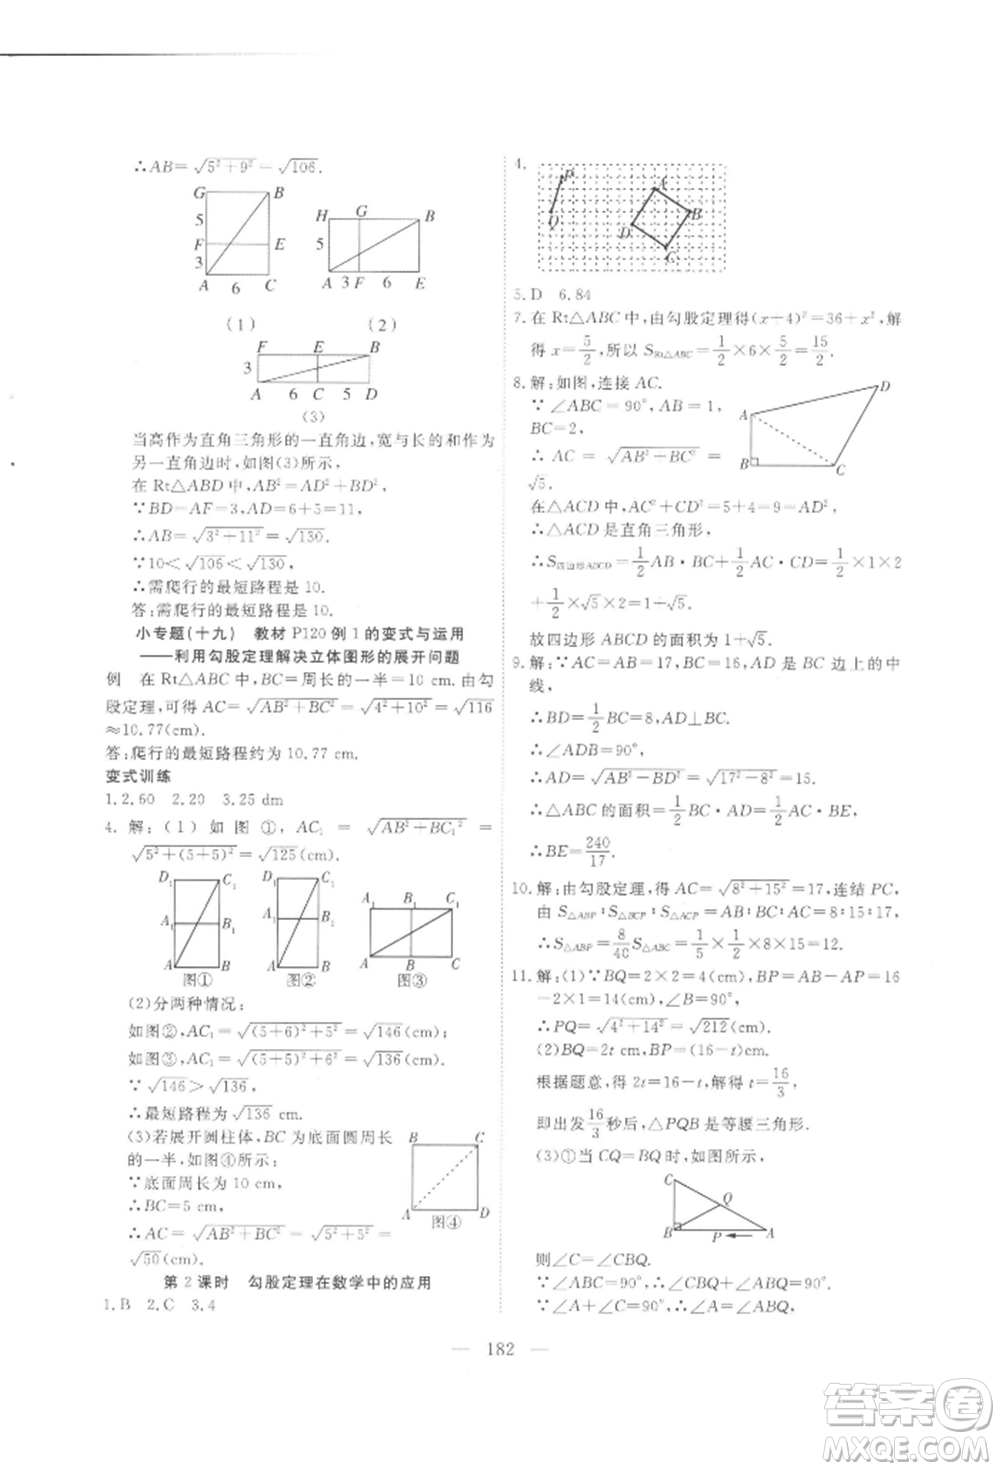 ∴AB=√(5²+9²)=√106.
G B
5
F E
3
A 6 C
(1)
H G B
5
A 3 F 6 E
(2)
F E B
3
A 6 C 5 D
(3)
当高作为直角三角形的一直角边,宽与长的和作为
另一直角边时,如图(3)所示,
在 Rt△ABD 中,AB²=AD²+BD².
∵BD=AF=3,AD=6+5=11,
∴AB=√(3²+11²)=√130.
∵10<√106<√130.
∴需爬行的最短路程是 10.
答:需爬行的最短路程是 10.
小专题(十九) 教材 P120 例 1 的变式与运用
——利用勾股定理解决立体图形的展开问题
例 在 Rt△ABC 中,BC=周长的一半=10 cm.由勾
股定理,可得 AC=√(AB²+BC²)=√(4²+10²)=√116
≈10.77(cm).
答:爬行的最短路程约为 10.77 cm.
变式训练
1.2.60 2.20 3.25 dm
4. 解:(1) 如 图 ①, AC₁ = √(AB²+BC₁²) =
√(5²+(5+5)²)=√125(cm).
D₁ C₁
A₁ B₁
A B
图①
D₁ C₁
A₁ B₁
A B
图②
A₁ B₁ C₁
A B C
图③
(2)分两种情况:
如图②,AC₁=√((5+6)²+5²)=√146(cm);
如图③,AC₁=√((5+5)²+6²)=√136(cm).
∵√146>√136,
∴最短路程为√136 cm.
(3)若展开圆柱体,BC 为底面圆周长
的一半,如图④所示:
∵底面周长为 10 cm,
∴BC=5 cm,
∴AC=√(AB²+BC²)=√(5²+5²)=
√50(cm).
B C
A D
图④
第 2 课时 勾股定理在数学中的应用
1.B 2.C 3.4
4.
P
Q
A
B
D
C
5.D 6.84
7.在 Rt△ABC 中,由勾股定理得(x+4)²=36+x²,解
得 x=5/2,所以 S_Rt△ABC=1/2×6×5/2=15/2.
8.解:如图,连接 AC.
∵∠ABC=90°,AB=1,
BC=2,
∴ AC = √(AB²+BC²) =
√5.
D
A
B C
在△ACD 中,AC²+CD²=5+4=9=AD²,
∴△ACD 是直角三角形,
∴S_四边形ABCD=1/2AB·BC+1/2AC·CD=1/2×1×2
+1/2×√5×2=1+√5.
故四边形 ABCD 的面积为 1+√5.
9.解:∵AB=AC=17,BC=16,AD 是 BC 边上的中
线,
∴BD=1/2BC=8,AD⊥BC.
∴∠ADB=90°,
∴AD=√(AB²-BD²)=√(17²-8²)=15.
∴△ABC 的面积=1/2BC·AD=1/2AC·BE,
∴BE=240/17.
10.解:由勾股定理,得 AC=√(8²+15²)=17,连结 PC,
由 S△ABP∶S△BCP∶S△ACP=AB∶BC∶AC=8∶15∶17,
∴S△ABP=8/40S△ABC=1/5×1/2×8×15=12.
11.解:(1)∵BQ=2×2=4(cm),BP=AB-AP=16
-2×1=14(cm),∠B=90°,
∴PQ=√(4²+14²)=√212(cm).
(2)BQ=2t cm,BP=(16-t)cm.
根据题意,得 2t=16-t,解得 t=16/3,
即出发16/3秒后,△PQB 是等腰三角形.
(3)①当 CQ=BQ 时,如图所示,
C
Q
B P← A
则∠C=∠CBQ.
∵∠ABC=90°,∴∠CBQ+∠ABQ=90°.
∵∠A+∠C=90°,∴∠A=∠ABQ,
— 182 —
答案圈
MXQE.COM